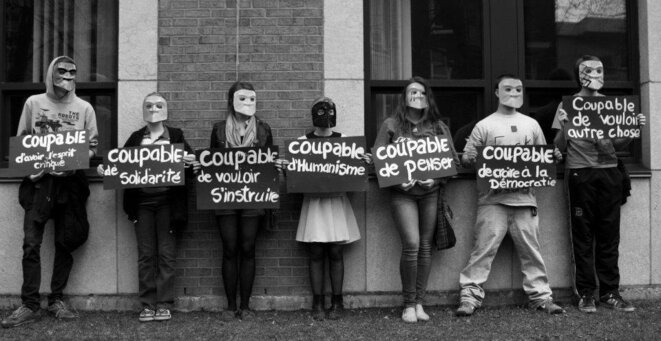 Coupable
d'avoir l'esprit
critique
Coupable
de Solidarité
Coupable
de vouloir
S'instruire
Coupable
d'Humanisme
Coupable
de penser
Coupable
de croire à la
Démocratie
Coupable
de vouloir
autre chose